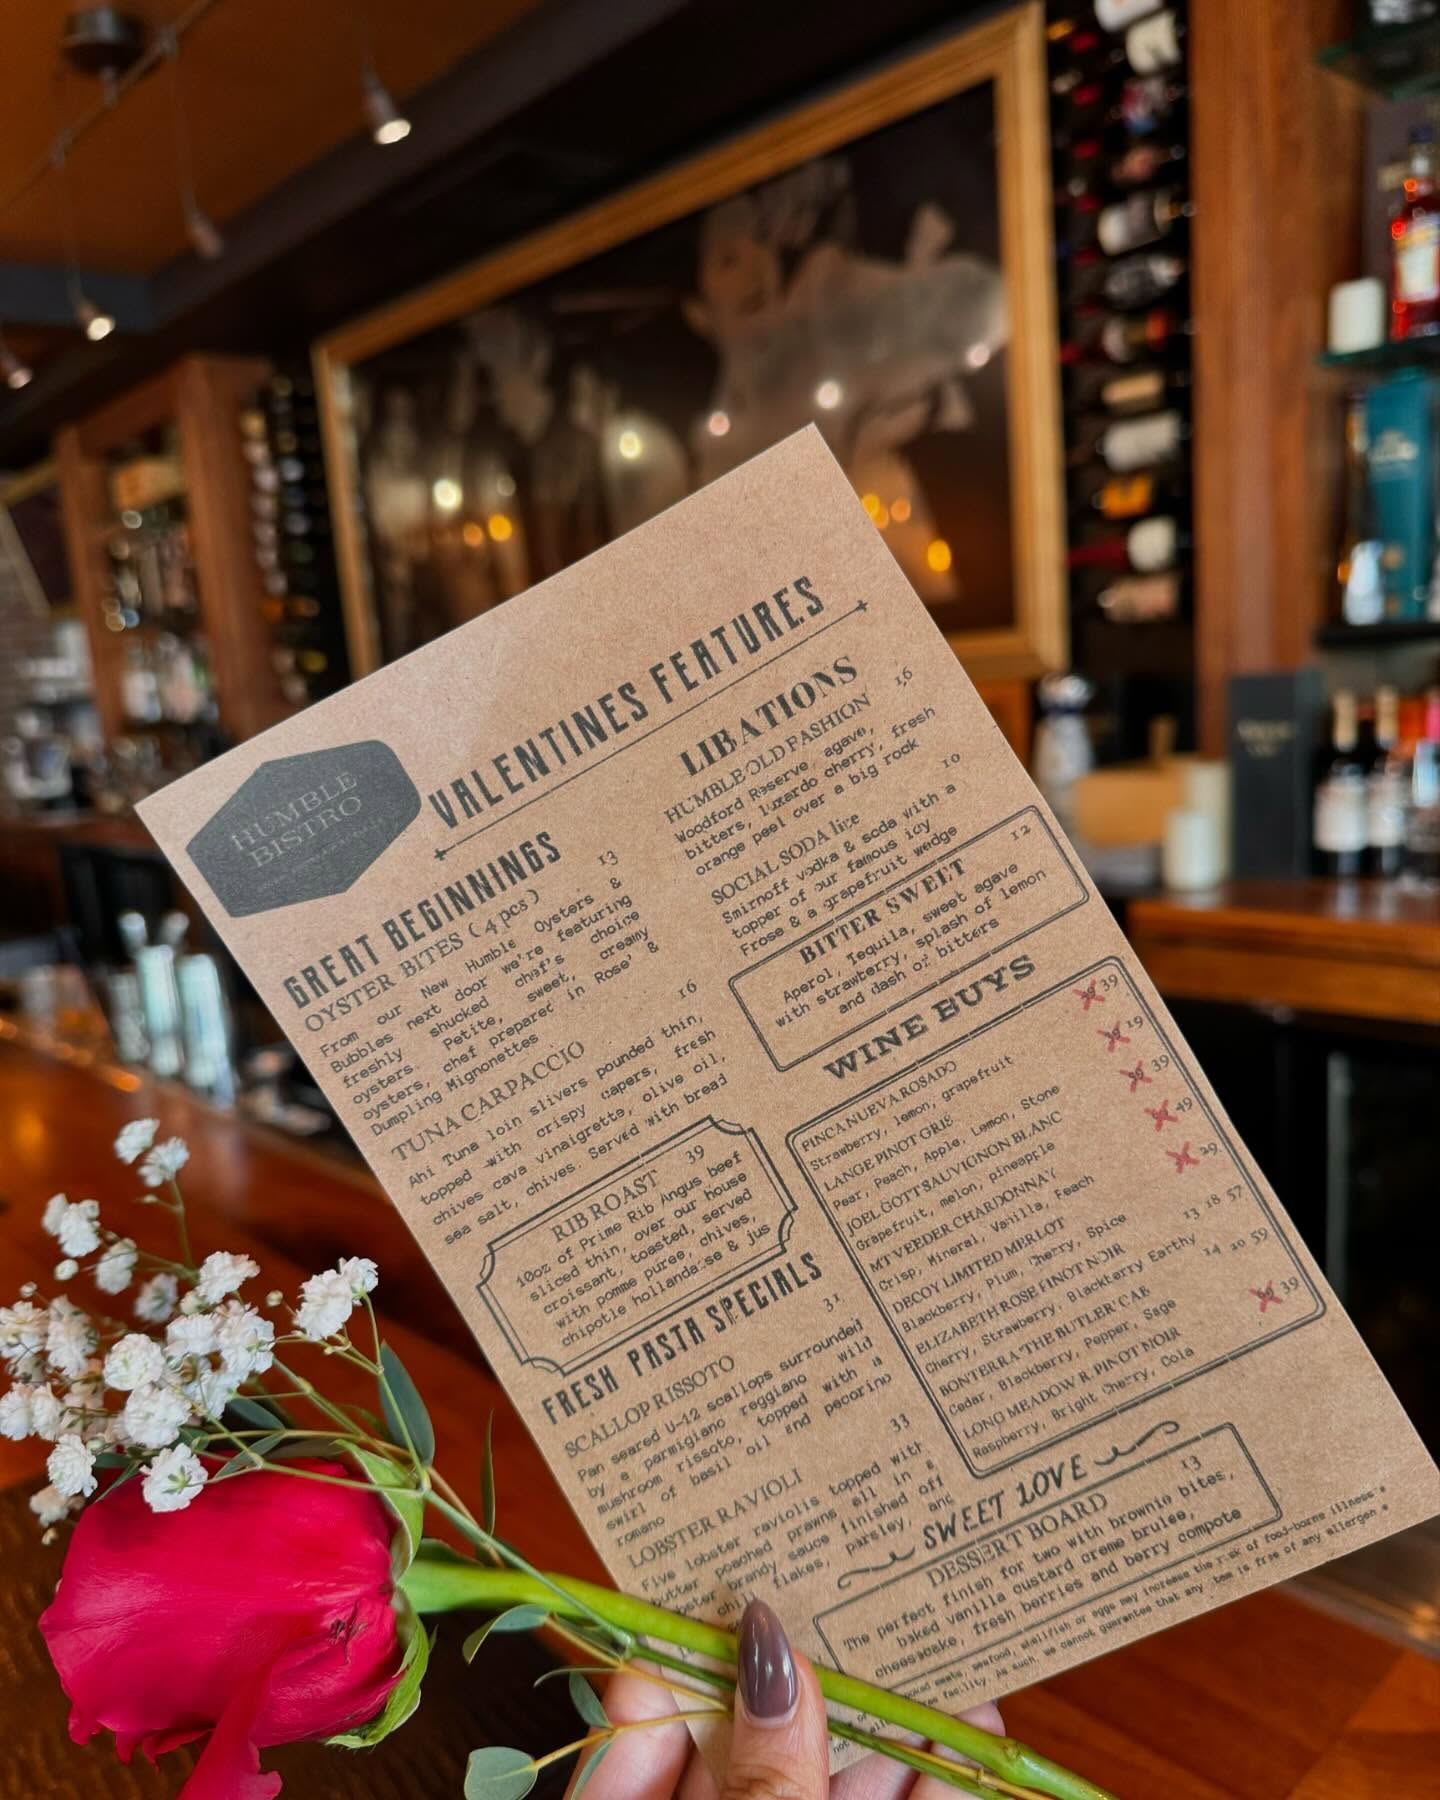 HUMBLE
BISTRO
VALENTINES FEATURES
GREAT BEGINNINGS
OYSTER BITES (4 pcs) 13
From our New Humble Oysters &
Bubbles next door we're featuring
freshly shucked chef's choice
oysters. Petite, sweet, creamy
oysters, chef prepared in Rose' &
Dumpling Mignonettes
TUNA CARPACCIO 16
Ahi Tuna loin slivers pounded thin,
topped with crispy capers, fresh
chives cava vinaigrette, olive oil,
sea salt, chives. Served with bread
RIB ROAST 39
10oz of Prime Rib Angus beef
sliced thin, over our house
croissant, toasted, served
with pomme puree, chives,
chipotle hollandaise & jus
FRESH PASTA SPECIALS
SCALLOP RISSOTO 31
Pan seared U-12 scallops surrounded
by a parmigiano reggiano wild
mushroom rissoto, topped with a
swirl of basil oil and pecorino
romano
LOBSTER RAVIOLI 33
Five lobster raviolis topped with
butter poached prawns all in a
lobster brandy sauce finished off
chili flakes, parsley, and
LIBATIONS
HUMBLE OLD FASHION 16
Woodford Reserve, agave,
bitters, luxardo cherry, fresh
orange peel over a big rock
SOCIAL SODA lite 10
Smirnoff vodka & soda with a
topper of our famous icy
Frose & a grapefruit wedge
BITTER SWEET 12
Aperol, Tequila, sweet agave
with strawberry, splash of lemon
and dash of bitters
WINE BUYS
FINCA NUEVA ROSADO 39
Strawberry, lemon, grapefruit
LANGE PINOT GRIS 19
Pear, Peach, Apple, Lemon, Stone
JOEL GOTT SAUVIGNON BLANC 39
Grapefruit, melon, pineapple
MT VEEDER CHARDONNAY 49
Crisp, Mineral, Vanilla, Peach
DECOY LIMITED MERLOT 29
Blackberry, Plum, Cherry, Spice
ELIZABETH ROSE PINOT NOIR 13 18 57
Cherry, Strawberry, Blackberry Earthy
BONTERRA 'THE BUTLER' CAB 14 20 59
Cedar, Blackberry, Pepper, Sage
LONG MEADOW R. PINOT NOIR 39
Raspberry, Bright Cherry, Cola
SWEET LOVE
DESSERT BOARD 13
The perfect finish for two with brownie bites,
baked vanilla custard creme brulee,
cheesecake, fresh berries and berry compote
meats, seafood, shellfish or eggs may increase the risk of food-borne illness.
facility. As such, we cannot guarantee that any item is free of any allergen